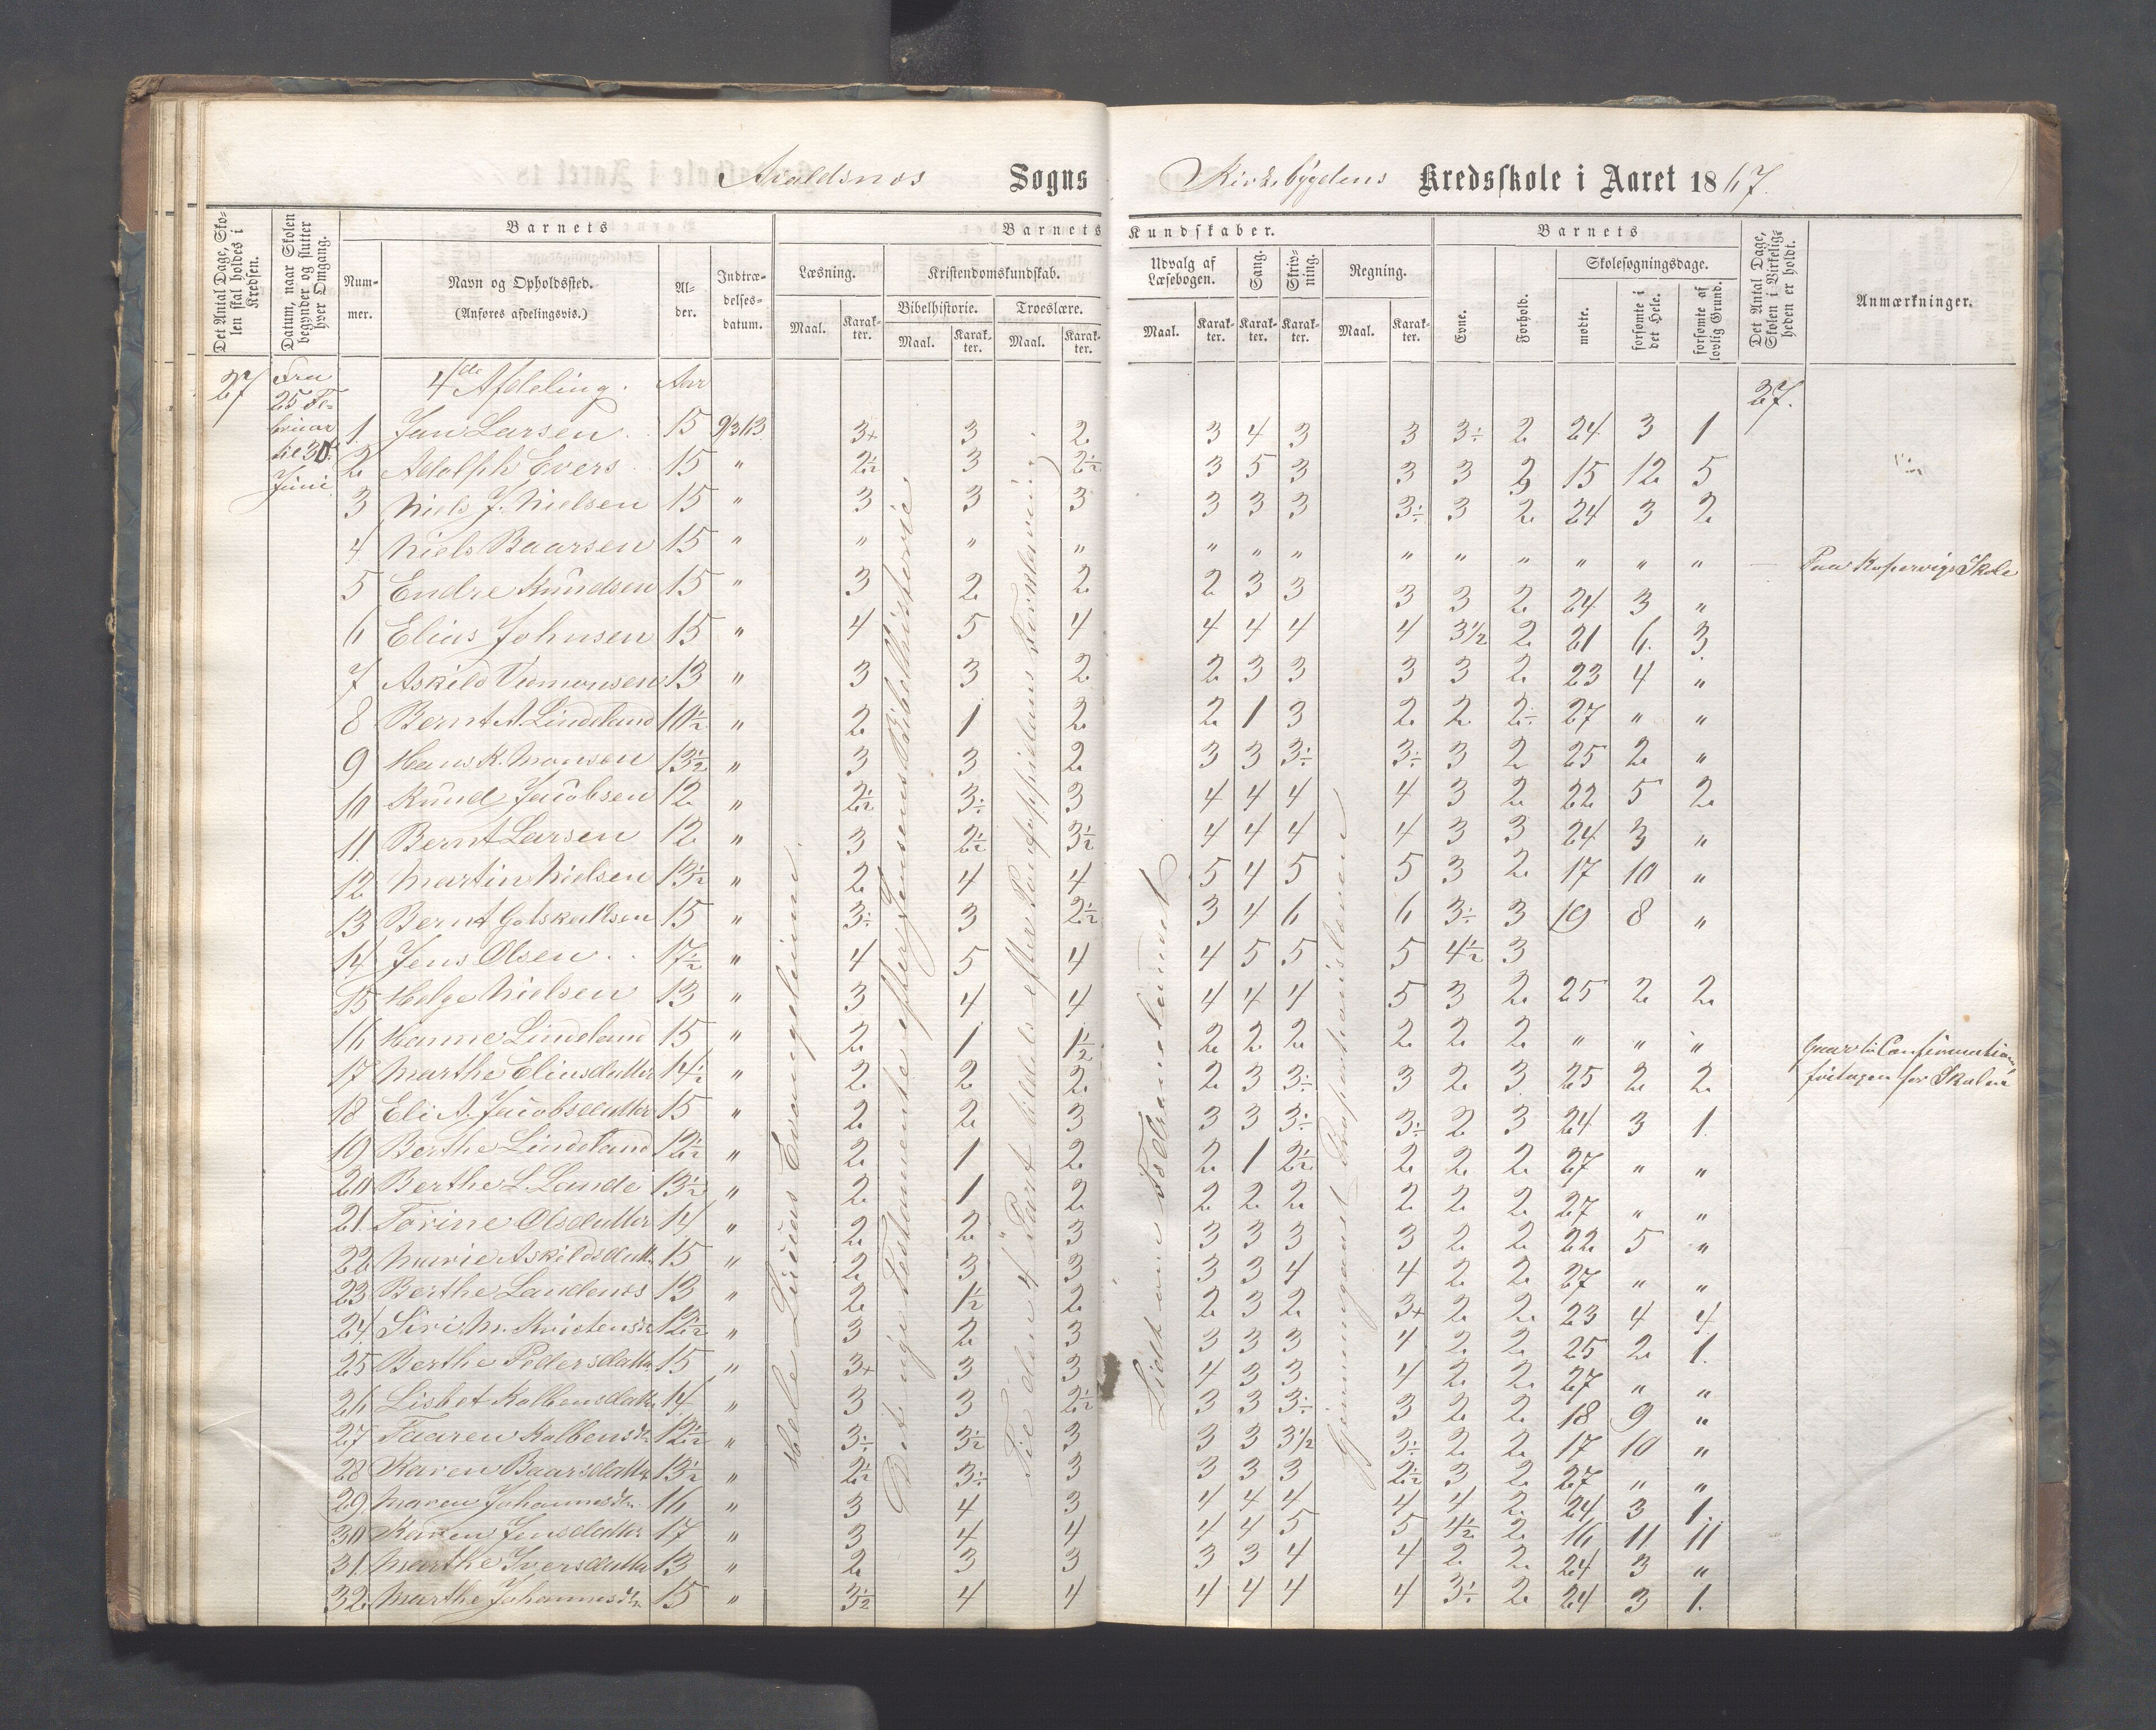 Avaldsnes Sogns Kirkebygdens Kredsskole i Aaret 1867.
Det Antal Dage, Skolen skal holdes i Kredsen.
Datum, naar Skolen begynder og slutter hver Omgang.
Barnets
Barnets Kundskaber.
Barnets
Det Antal Dage, Skolen i Virkeligheden er holdt.
Anmærkninger.
Nummer.
Navn og Opholdssted.
(Anføres afdelingsvis.)
Alder.
Indtrædelsesdatum.
Læsning.
Kristendomskundskab.
Udvalg af Læsebogen.
Sang.
Skrivning.
Regning.
Evne.
Forhold.
Skolesøgningsdage.
Bibelhistorie.
Troeslære.
Maal. Karakter. Maal. Karakter. Maal. Karakter. Maal. Karakter. Karakter. Karakter. Maal. Karakter.
mødte.
forsømte i det Hele.
forsømte af lovlig Grund.
27 Fra 25 Februar til 30 Juni
4de Afdeling. Aar 27.
1. Jan Larsen 15 9/3 63 3+ 3 2 3 4 3 3 3÷ 2 24 3 1
2 Adolph Evers 15 " 2½ 3 2½ 3 5 3 3 3 2 15 12 5
3 Niels J. Nielsen 15 " 3 3 3 3 3 3 3÷ 3 2 24 3 2
4 Niels Baarsen 15 " " " " " " " " " " " " " Paa Kopervigs Skole
5 Endre Knudsen 15 " 3 2 2 2 3 3 3 3 2 24 3 "
6 Elias Johnsen 15 " 4 5 4 4 4 4 4 3½ 2 21 6 3
7 Askild Vermonsen 13 " 3 3 2 2 3 3 3 3 2 23 4 "
8 Bernt A. Lindeland 10½ " 2 1 2 2 1 3 2 2 2÷ 27 " "
9 Hans K. Monsen 13½ " 3 3 2 3 3 3÷ 3÷ 3 2 25 2 "
10 Knud Jacobsen 12 " 2½ 3÷ 3 4 4 4 4 3 2 22 5 2
11 Bernt Larsen 12 " 3 2½ 3½ 4 4 4 4 3 3 24 3 "
12 Martin Nielsen 13½ " 2 4 4 5 4 5 5 3 2 17 10 "
13 Bernt Gotskalksen 15 " 3÷ 3 2½ 3 4 6 6 3÷ 3 19 8 "
14 Jens Olsen 17½ " 4 5 4 4 5 5 5 4½ 3
15 Helge Nielsen 13 " 3 4 4 4 4 4 5 3 2 25 2 2
16 Hanne Lindeland 15 " 2 1 1½ 2 2 2 2 2 2 " " " Gaar til Confirmation
17 Marthe Eliasdatter 14½ " 2 2 2 2 3 3÷ 3 2 3 25 2 2 for Skolen
18 Eli A. Jacobsdatter 15 " 2 2 3 3 3 3÷ 3÷ 2 3 24 3 1.
19 Berthe Lindeland 12½ " 2 1 2 2 1 2½ 2 2 2 27 " "
20 Berthe L. Lande 13½ " 2 1 2 2 2 2 2 2 2 27 " "
21. Torine Olsdatter 14 " 2 2 3 3 3 3 3 2 2 22 5 "
22 Marie Askildsdatt. 15 " 2 3 3 3 3 4 4 2 2 27 " "
23 Berthe Landenes 13 " 2 1½ 2 2 3 2 3+ 2 2 23 4 4
24. Siri M. Kristensdr 12½ " 3 2 3 3 3 3 4 2 2 25 2 1.
25 Berthe Pedersdattr 15 " 3+ 3 3 4 3 3 4 2 2 27 " "
26 Lisbet Kolbensdattr 14 " 3 3 2½ 3 3 3÷ 3 2 2 18 9 "
27 Taaren Kolbensdr 12½ " 3÷ 3½ 3 3 3 3½ 3÷ 2 2 17 10 "
28 Karen Baarsdatter 13½ " 2½ 3÷ 3 3 3 3 2½ 3 2 27 " "
29. Maren Johannesdr. 16 " 3 4 3 4 4 4 4 4 2 24 3 1.
30 Karen Jensdatter 17 " 3 4 4 4 4 5 5 4½ 2 16 11 11
31. Marthe Iversdatter 13 " 2 3 3 3 3 4 4 2 2 24 3 "
32. Marthe Johannesdr 15 " 3½ 4 4 4 4 4 4 3÷ 2 24 3 1.
Hele Lucas Evangelium.
Det nye Testamente efter Jensens Bibelhistorie
Til den 4 Part efter Pontoppidans Forklaring
Lidt om Fædrelandet
Gjennemgaaet